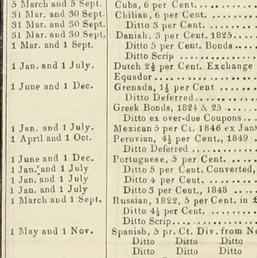 5 March and 5 Sept. Cuba, 6 per Cent.
31 Mar. and 30 Sept. Chilian, 6 per Cent.
31 Mar. and 30 Sept. Ditto 3 per Cent.
31 Mar. and 30 Sept. Danish, 3 per Cent. 1825
1 Mar. and 1 Sept. Ditto 5 per Cent. Bonds
Ditto Scrip
1 Jan. and 1 July. Dutch 2½ per Cent. Exchange
Equador
1 June and 1 Dec. Grenada, 1½ per Cent
Ditto Deferred
Greek Bonds, 1824 & 25
Ditto ex over-due Coupons
1 Jan. and 1 July. Mexican 5 per Ct. 1846 ex Jan
1 April and 1 Oct. Peruvian, 4½ per Cent., 1849
Ditto Deferred
1 June and 1 Dec. Portuguese, 5 per Cent.
1 Jan. and 1 July Ditto 5 per Cent. Converted,
1 Jan. and 1 July Ditto 4 per Cent.
1 Jan. and 1 July Ditto 3 per Cent., 1848
1 March and 1 Sept. Russian, 1822, 5 per Cent. in £
Ditto 4½ per Cent.
Ditto Scrip
1 May and 1 Nov. Spanish, 5 pr. Ct. Div. from No
Ditto Ditto Ditto
Ditto Ditto Ditto